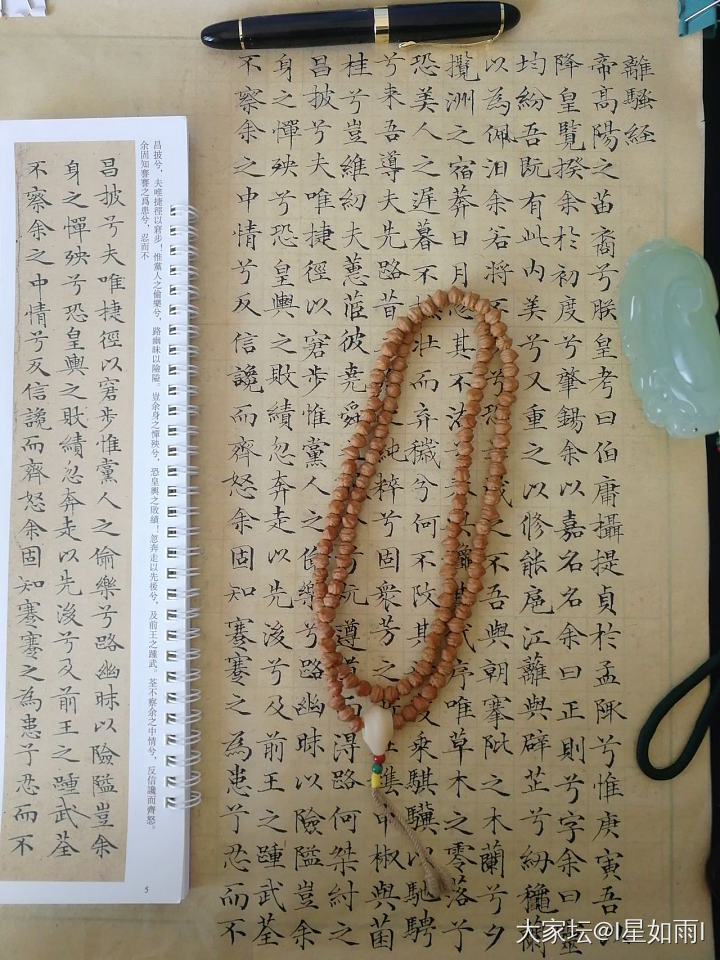 離騷經
帝高陽之苗裔兮朕皇考曰伯庸攝提貞於孟陬兮惟庚寅吾
降皇覽揆余於初度兮肇錫余以嘉名名余曰正則兮字余曰靈
均紛吾既有此內美兮又重之以脩能扈江離與辟芷兮紉穐蘭
以為佩汩余若將不兮恐歲之不吾與朝搴阰之木蘭兮夕
攬洲之宿莽日月忽其不淹兮其代序唯草木之零落兮
恐美人之遲暮不壯而弃穢兮何不改其度乘騏驥以馳騁
兮來吾導夫先路昔之純粹兮固眾芳之在雜申椒與菌
桂兮豈維紉夫蕙茝彼堯舜兮既遵道而得路何桀紂之
昌披兮夫唯捷徑以窘步惟黨人之偷樂兮路幽昧以險隘豈余
身之憚殃兮恐皇輿之敗績忽奔走以先後兮及前王之踵武荃
不察余之中情兮反信讒而齊怒余固知謇謇之為患兮忍而不
昌披兮，夫唯捷徑以窘步！惟黨人之偷樂兮，路幽昧以險隘。豈余身之憚殃兮，恐皇輿之敗績！忽奔走以先後兮，及前王之踵武。荃不察余之中情兮，反信讒而齊怒。
余固知謇謇之爲患兮，忍而不
昌披兮夫唯捷徑以窘步惟黨人之偷樂兮路幽昧以險隘豈余
身之憚殃兮恐皇輿之敗績忽奔走以先後兮及前王之踵武荃
不察余之中情兮反信讒而齊怒余固知謇謇之為患兮忍而不
5
大家坛@l星如雨l